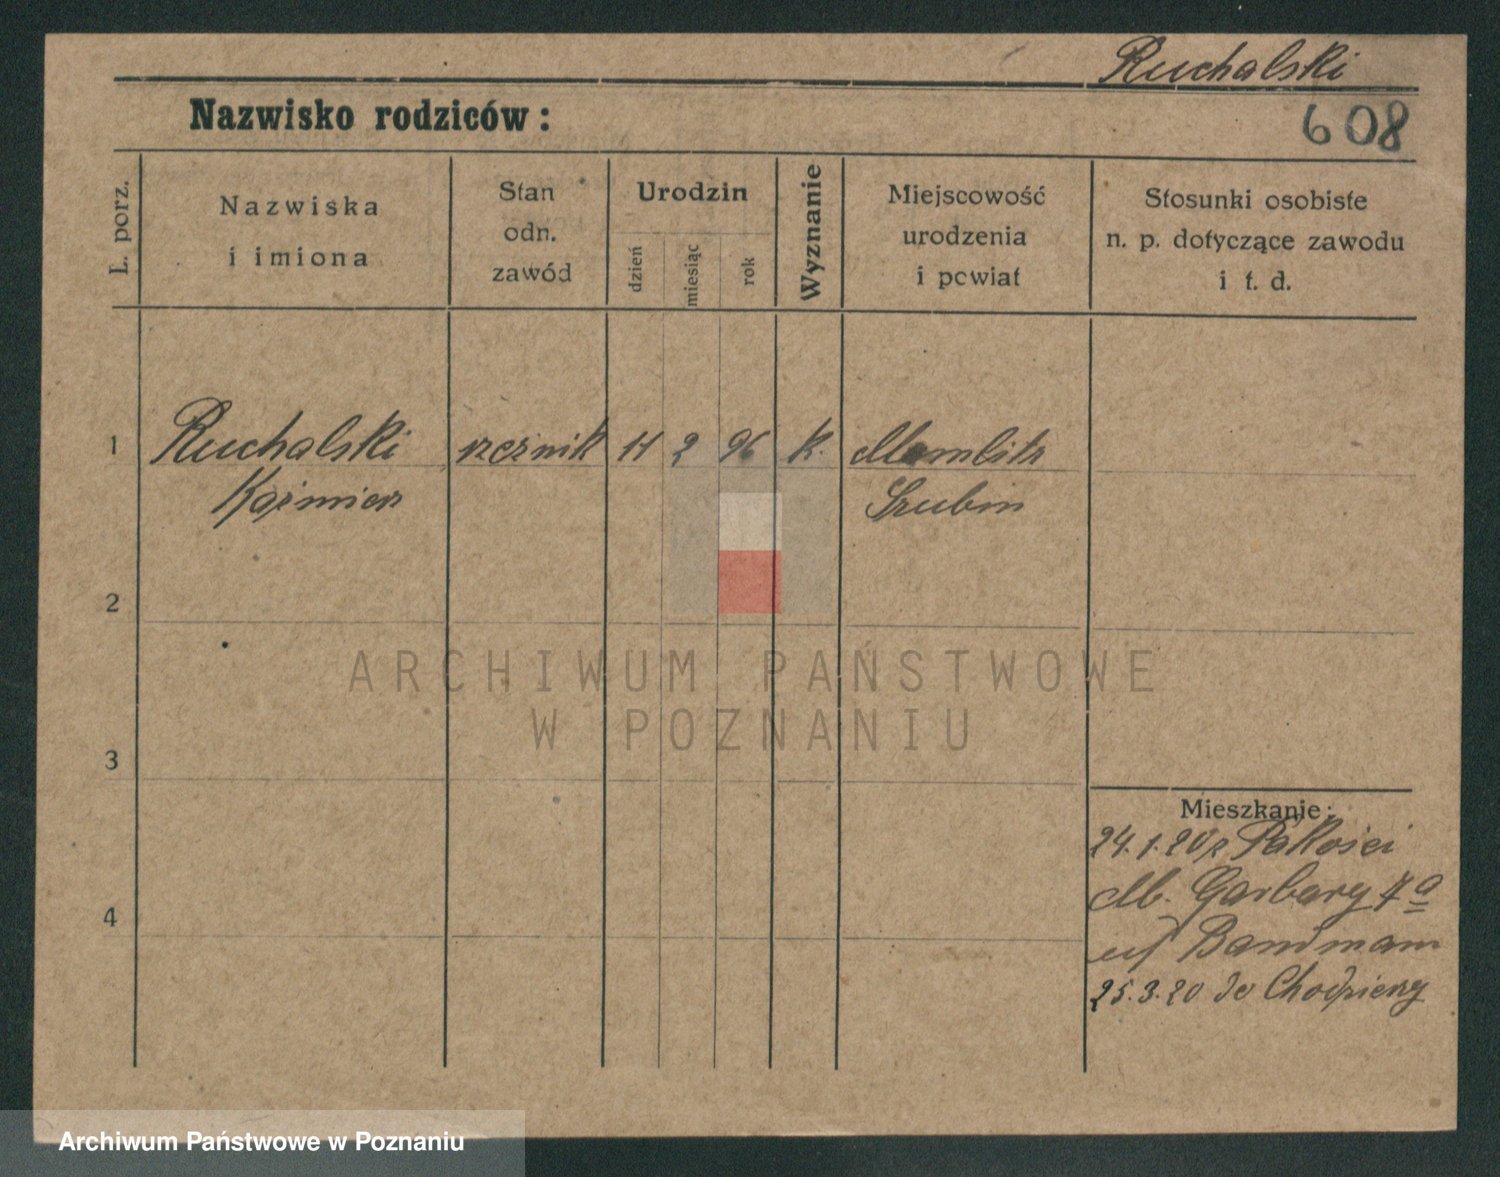 Ruchalski
Nazwisko rodziców:
608
L. porz.
Nazwiska
i imiona
Stan
odn.
zawód
Urodzin
dzień
miesiąc
rok
Wyznanie
Miejscowość
urodzenia
i powiat
Stosunki osobiste
n. p. dotyczące zawodu
i t. d.
1
Ruchalski rzeźnik 11 2 96 k. Mamlitz
Kaźmierz Szubin
2
ARCHIWUM PAŃSTWOWE
W POZNANIU
3
Mieszkanie:
24.1.20 z Pakości
Garbary 7a
Bandmann
4
25.3.20 do Chodzieży
Archiwum Państwowe w Poznaniu